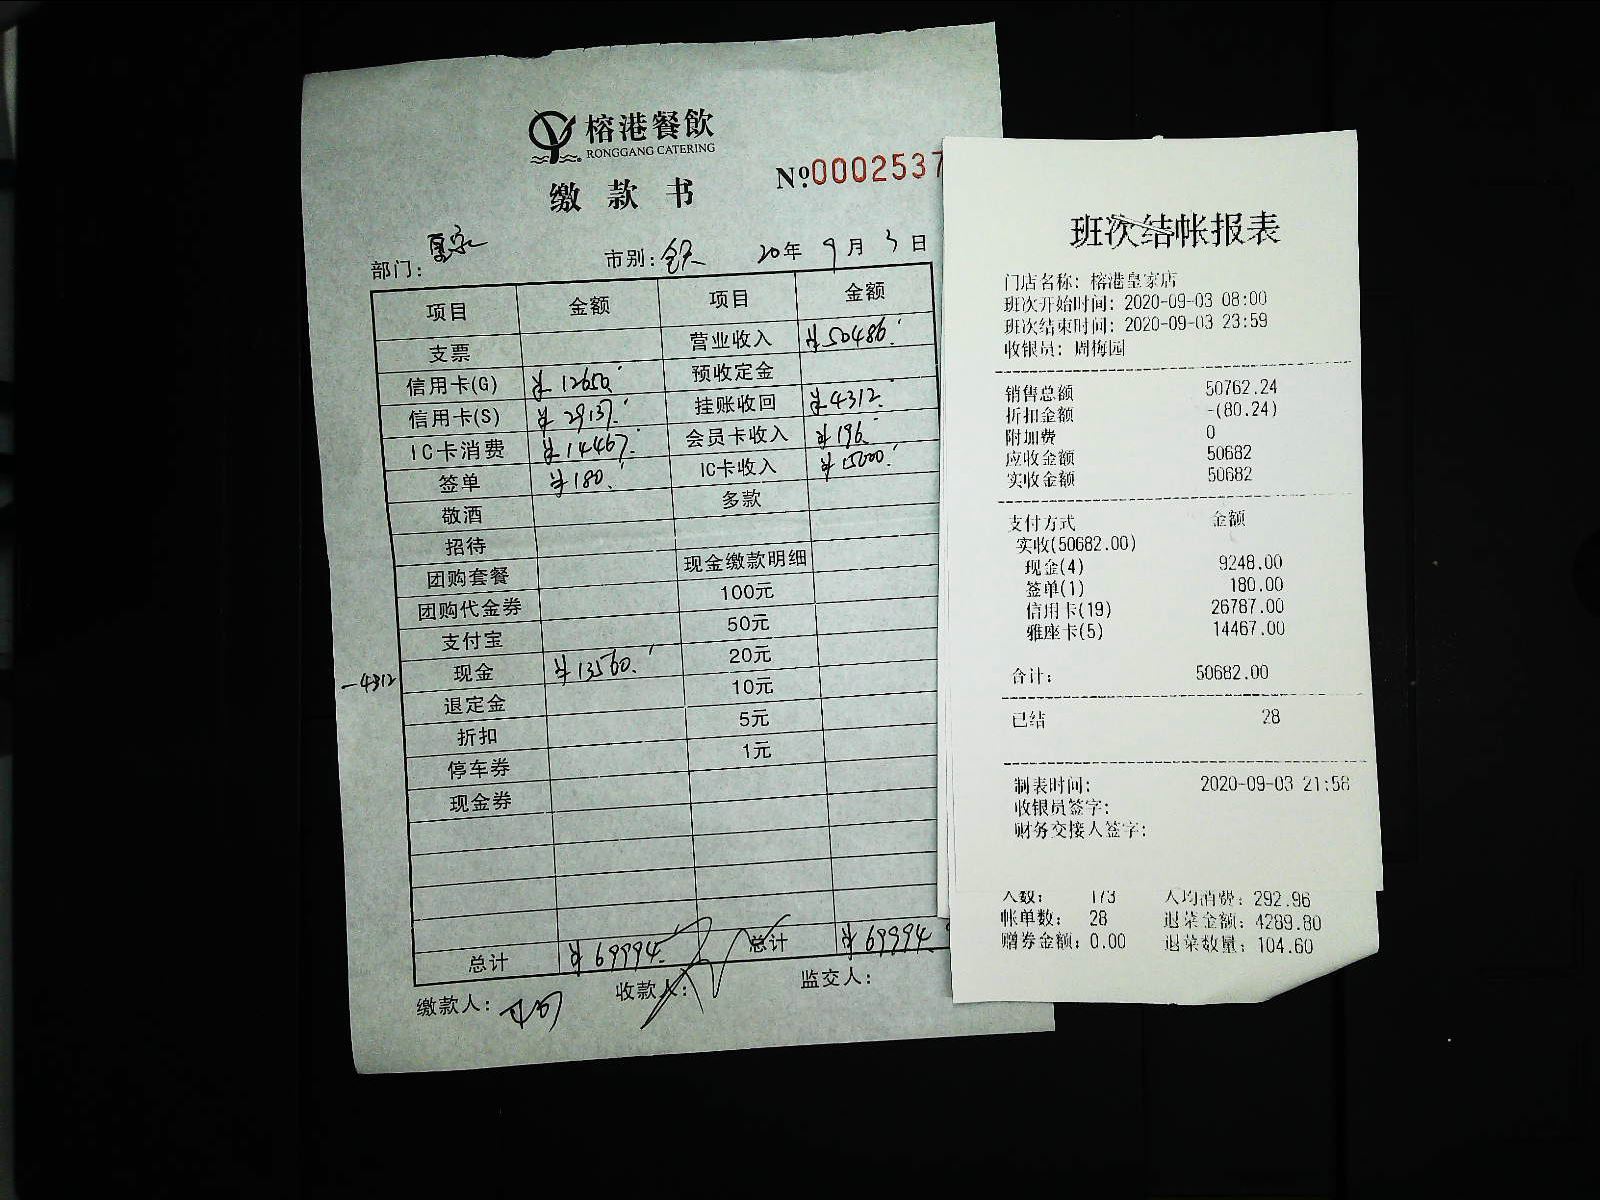 榕港餐飲
RONGGANG CATERING
缴款书
№0002537
部门: 皇家 市别: 全天 20年 9月 3日
项目 金额 项目 金额
支票 营业收入 ¥50486.
信用卡(G) ¥12650. 预收定金
信用卡(S) ¥29137. 挂账收回 ¥4312.
IC卡消费 ¥14467. 会员卡收入 ¥196.
签单 ¥180. IC卡收入 ¥15000.
敬酒 多款
招待
团购套餐 现金缴款明细
团购代金券 100元
支付宝 50元
-4312 现金 ¥13560. 20元
退定金 10元
折扣 5元
停车券 1元
现金券
总计 ¥69994. 总计 ¥69994.
缴款人: 收款人: 监交人:
班次结帐报表
门店名称: 榕港皇家店
班次开始时间: 2020-09-03 08:00
班次结束时间: 2020-09-03 23:59
收银员: 周梅园
销售总额 50762.24
折扣金额 -(80.24)
附加费 0
应收金额 50682
实收金额 50682
支付方式 金额
实收(50682.00)
现金(4) 9248.00
签单(1) 180.00
信用卡(19) 26787.00
雅座卡(5) 14467.00
合计: 50682.00
已结 28
制表时间: 2020-09-03 21:58
收银员签字:
财务交接人签字:
人数: 173 人均消费: 292.96
帐单数: 28 退菜金额: 4289.80
赠券金额: 0.00 退菜数量: 104.60